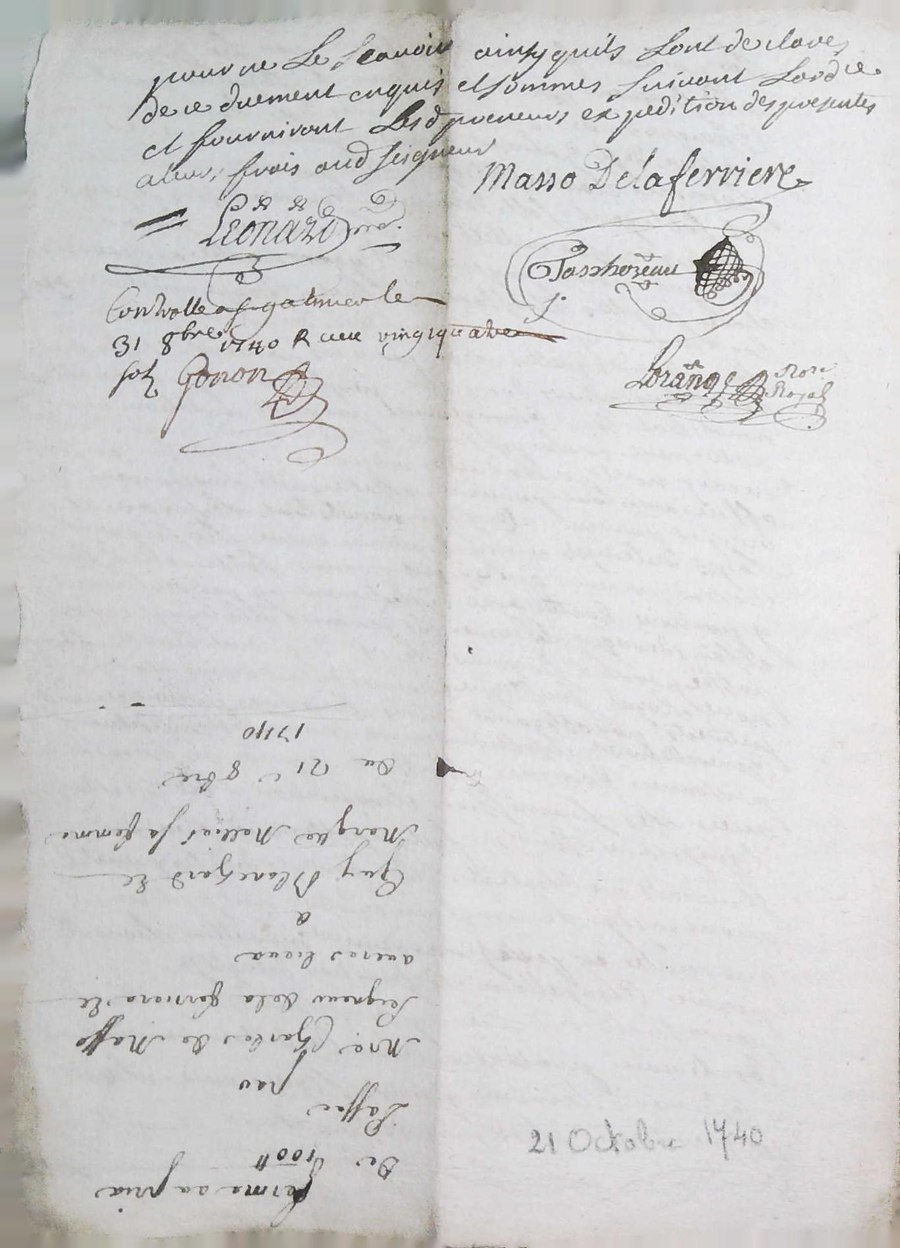 pour ne le scavoir ainsy quils sont declares
de ce duement enquis et sommes suivant Lordce
et fourniront Lesd preneurs expedition des presentes
aleurs frais aud seigneur
Masso Delaferriere
Leonard
Controlle a le
31 8bre 1740 R vingtquatre
sols Gonon
Loranges Nore
Royal
ferme au prix
De 100tt
Passee
par
Mre Charles de Masso
Seigneur dela ferriere et
autres lieux
a
Guy et
Margtte sa femme
Du 21 8bre
1740
21 Octobre 1740